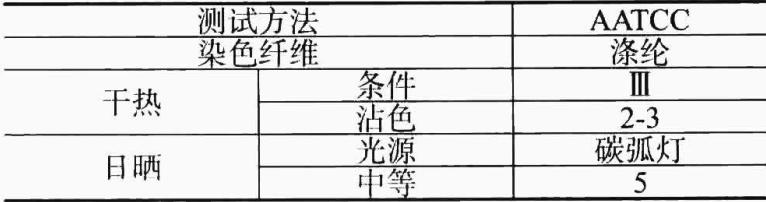 测试方法 AATCC
染色纤维 涤纶
干热 条件 Ⅲ
沾色 2-3
日晒 光源 碳弧灯
中等 5